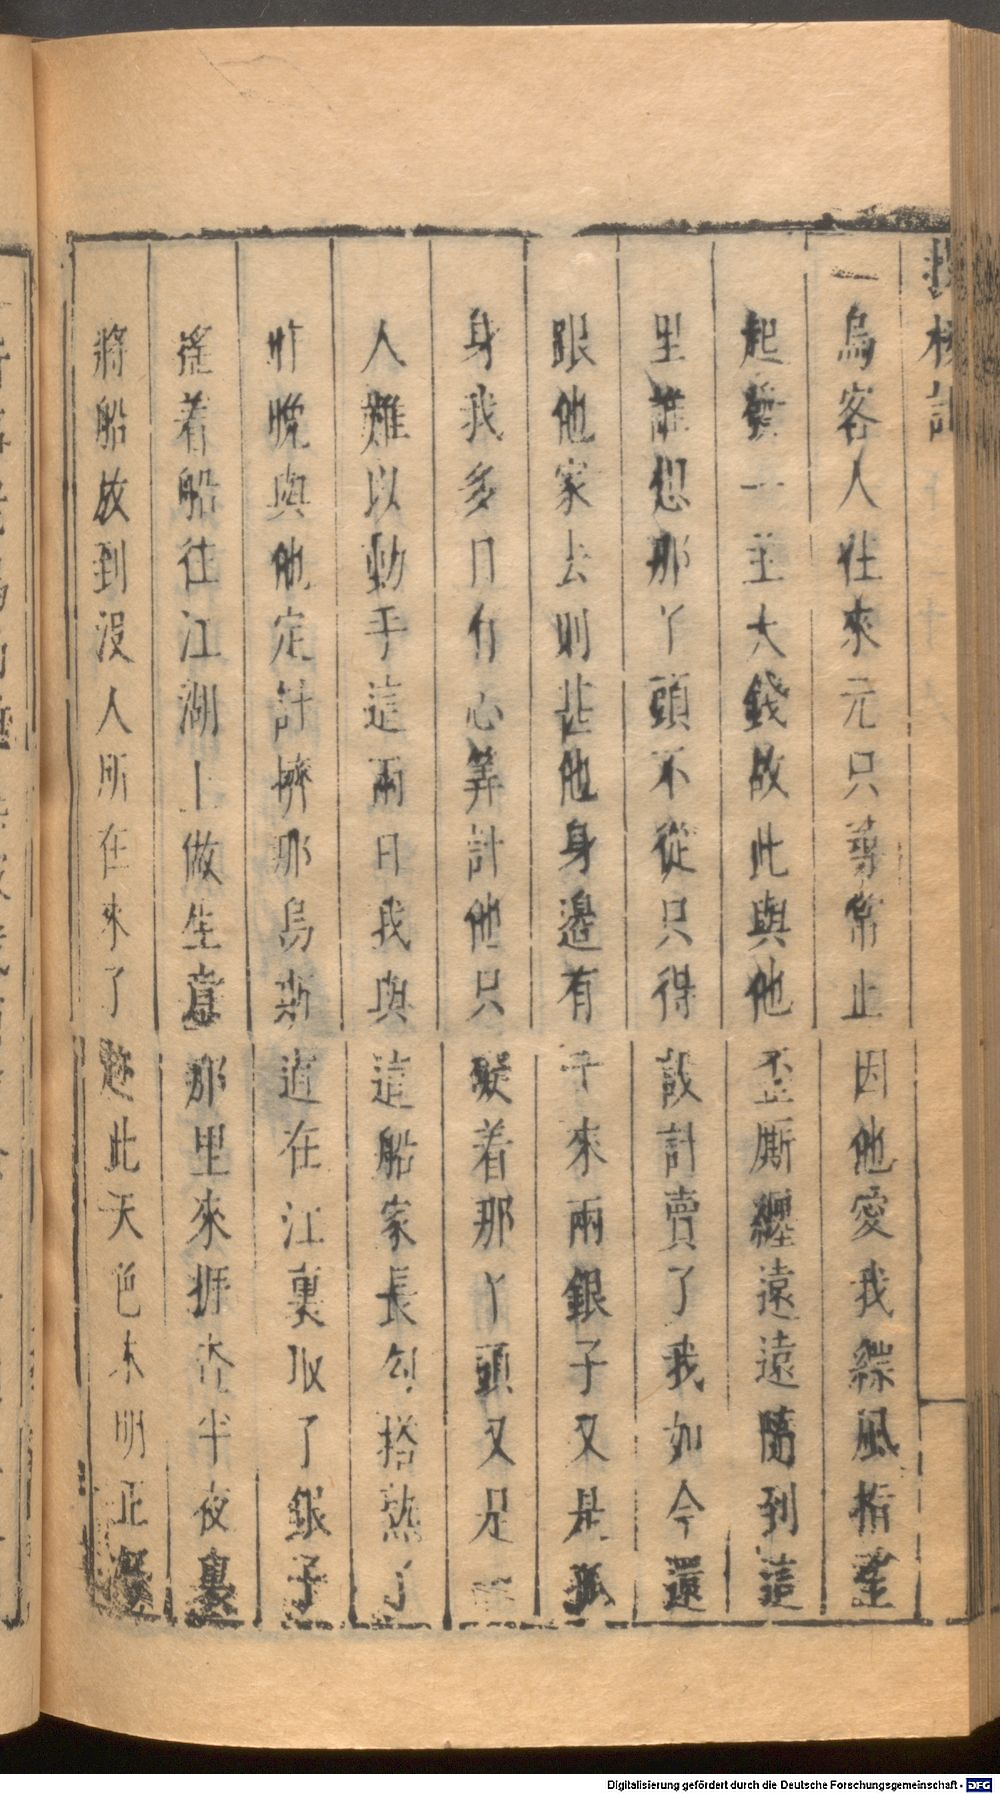 投梭記
一烏客人往來元只尋常止因他愛我縹風指望
起發一主大錢故此與他歪廝纏遠遠隨到這
里誰想那丫頭不從只得設計賣了我如今還
跟他家去則甚他身邊有千來兩銀子又是孤
身我多日有心筭計他只礙着那丫頭又是二
人難以動手這兩日我與這船家長勾搭熟了
昨晚與他定計擠那烏斯道在江裏取了銀子
搖着船往江湖上做生意那里來捱查半夜裏
將船放到沒人所在來了趂此天色未明正好
Digitalisierung gefördert durch die Deutsche Forschungsgemeinschaft - DFG